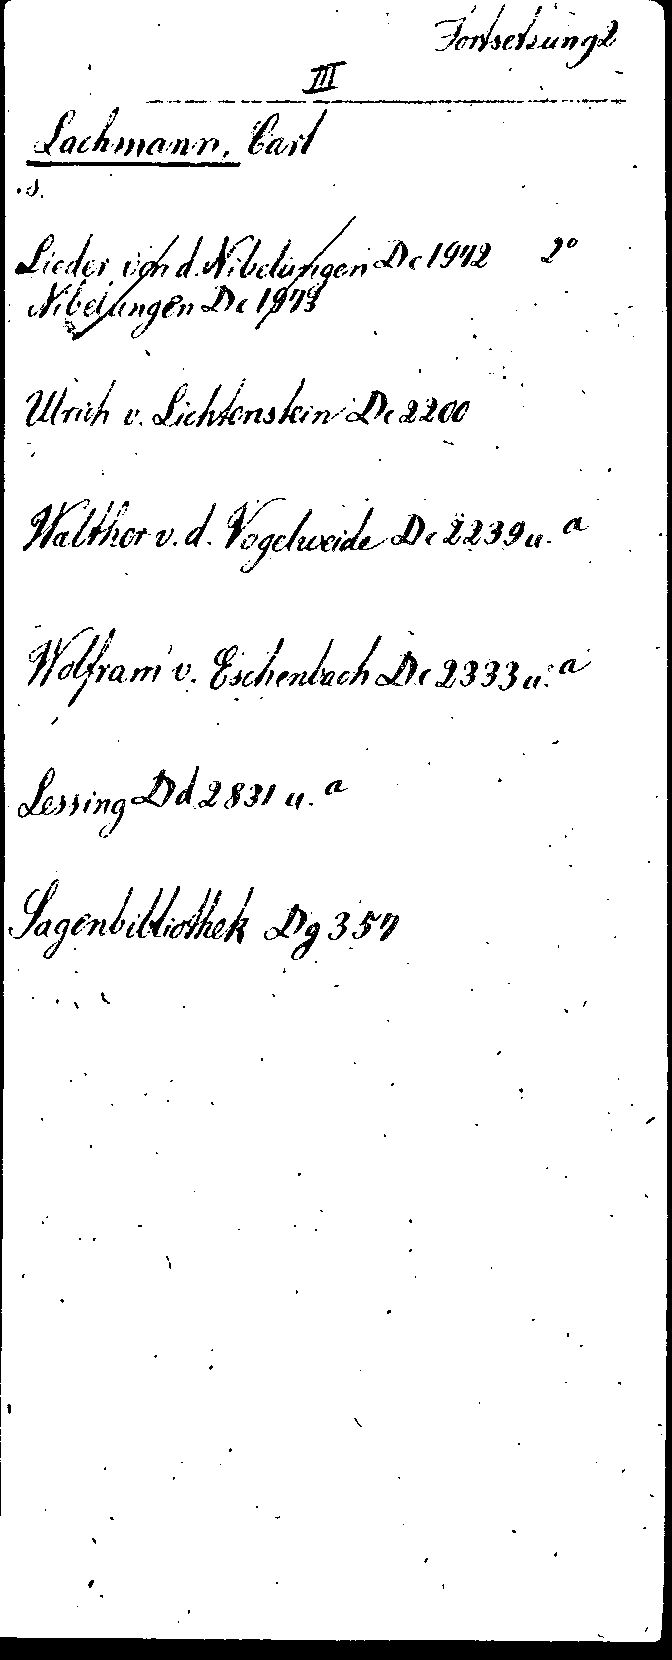 Fortsetzung 2
III
Lachmann, Carl
s.
Lieder von d. Nibelungen Dc 1942 2°
Nibelungen Dc 1943
Ulrich v. Lichtenstein Dc 2200
Walther v. d. Vogelweide Dc 2239 u. a
Wolfram v. Eschenbach Dc 2333 u. a
Lessing Dd 2831 u. a
Sagenbibliothek Dg 357